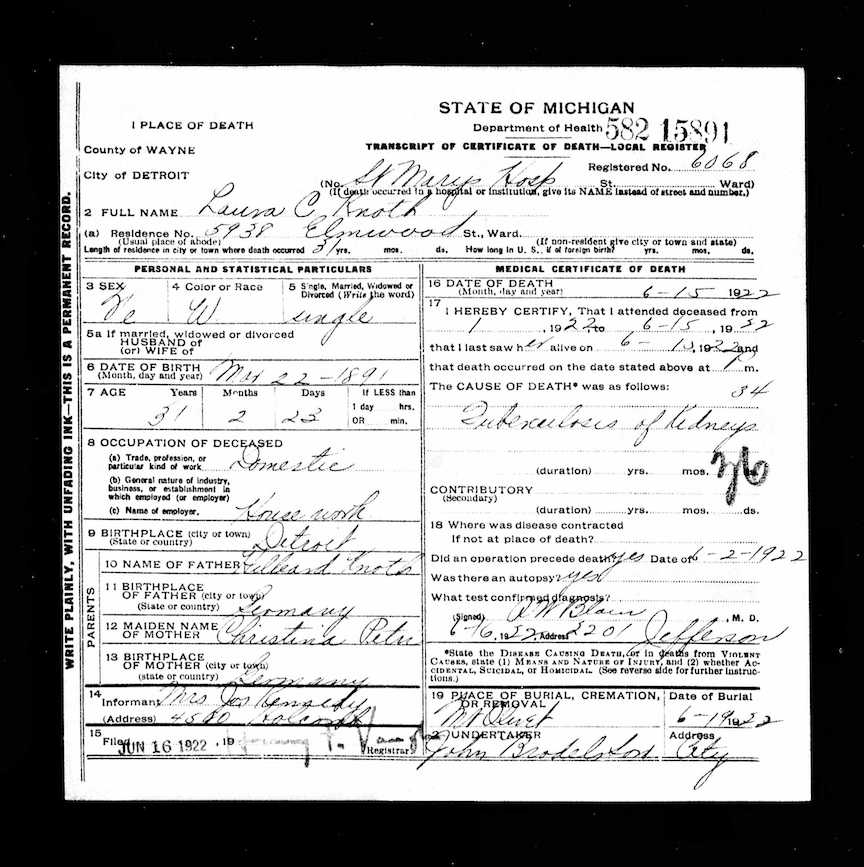 STATE OF MICHIGAN
Department of Health 582 15891
1 PLACE OF DEATH
TRANSCRIPT OF CERTIFICATE OF DEATH—LOCAL REGISTER
County of WAYNE
Registered No. 6068
City of DETROIT
(No. St Marys Hosp St. Ward)
(If death occurred in a hospital or institution, give its NAME instead of street and number.)
2 FULL NAME Laura C Knoth
(a) Residence No. 5938 Elmwood St., Ward.
(Usual place of abode) (If non-resident give city or town and state)
Length of residence in city or town where death occurred 31 yrs. mos. ds. How long in U. S., if of foreign birth? yrs. mos. ds.
PERSONAL AND STATISTICAL PARTICULARS
3 SEX 4 Color or Race 5 Single, Married, Widowed or
Divorced (Write the word)
Fe W single
5a If married, widowed or divorced
HUSBAND of
(or) WIFE of
6 DATE OF BIRTH
(Month, day and year) Mar 22-1891
7 AGE Years Months Days If LESS than
1 day hrs.
31 2 23 OR min.
8 OCCUPATION OF DECEASED
(a) Trade, profession, or
particular kind of work Domestic
(b) General nature of industry,
business, or establishment in
which employed (or employer)
(c) Name of employer. House work
9 BIRTHPLACE (city or town)
(State or country) Detroit
PARENTS
10 NAME OF FATHER Knoth
11 BIRTHPLACE
OF FATHER (city or town)
(State or country) Germany
12 MAIDEN NAME
OF MOTHER Christina
13 BIRTHPLACE
OF MOTHER (city or town)
(state or country) Germany
14
Informant Mrs Jos Kennedy
(Address) 4560 Holcomb
15
Filed JUN 16 1922, 19
Registrar
MEDICAL CERTIFICATE OF DEATH
16 DATE OF DEATH
(Month, day and year) 6-15 1922
17
I HEREBY CERTIFY, That I attended deceased from
1, 1922 to 6-15, 1922
that I last saw her alive on 6- 15, 1922 and
that death occurred on the date stated above at m.
The CAUSE OF DEATH* was as follows: 34
Tuberculosis of Kidneys
(duration) yrs. mos.
36
CONTRIBUTORY
(Secondary)
(duration) yrs. mos. ds.
18 Where was disease contracted
if not at place of death?
Did an operation precede death? yes Date of 6-2-1922
Was there an autopsy? yes
What test confirmed diagnosis?
(Signed) A W Blain M. D.
6-16, 1922 Address 2201 Jefferson
*State the DISEASE CAUSING DEATH, or in deaths from VIOLENT
CAUSES, state (1) MEANS AND NATURE OF INJURY, and (2) whether AC-
CIDENTAL, SUICIDAL, OR HOMICIDAL. (See reverse side for further instruc-
tions.)
19 PLACE OF BURIAL, CREMATION, Date of Burial
OR REMOVAL
Mt Olivet 6-19 1922
UNDERTAKER Address
John City
WRITE PLAINLY, WITH UNFADING INK—THIS IS A PERMANENT RECORD.